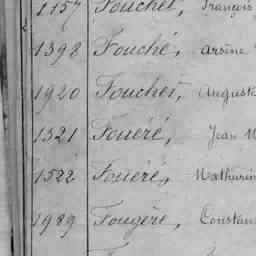 1157 Fouchet, François
1398 Fouché, Arsène
1920 Fouchet, Auguste
1521 Fouéré, Jean M
1522 Fouéré, Mathurin
1989 Fougère, Constan